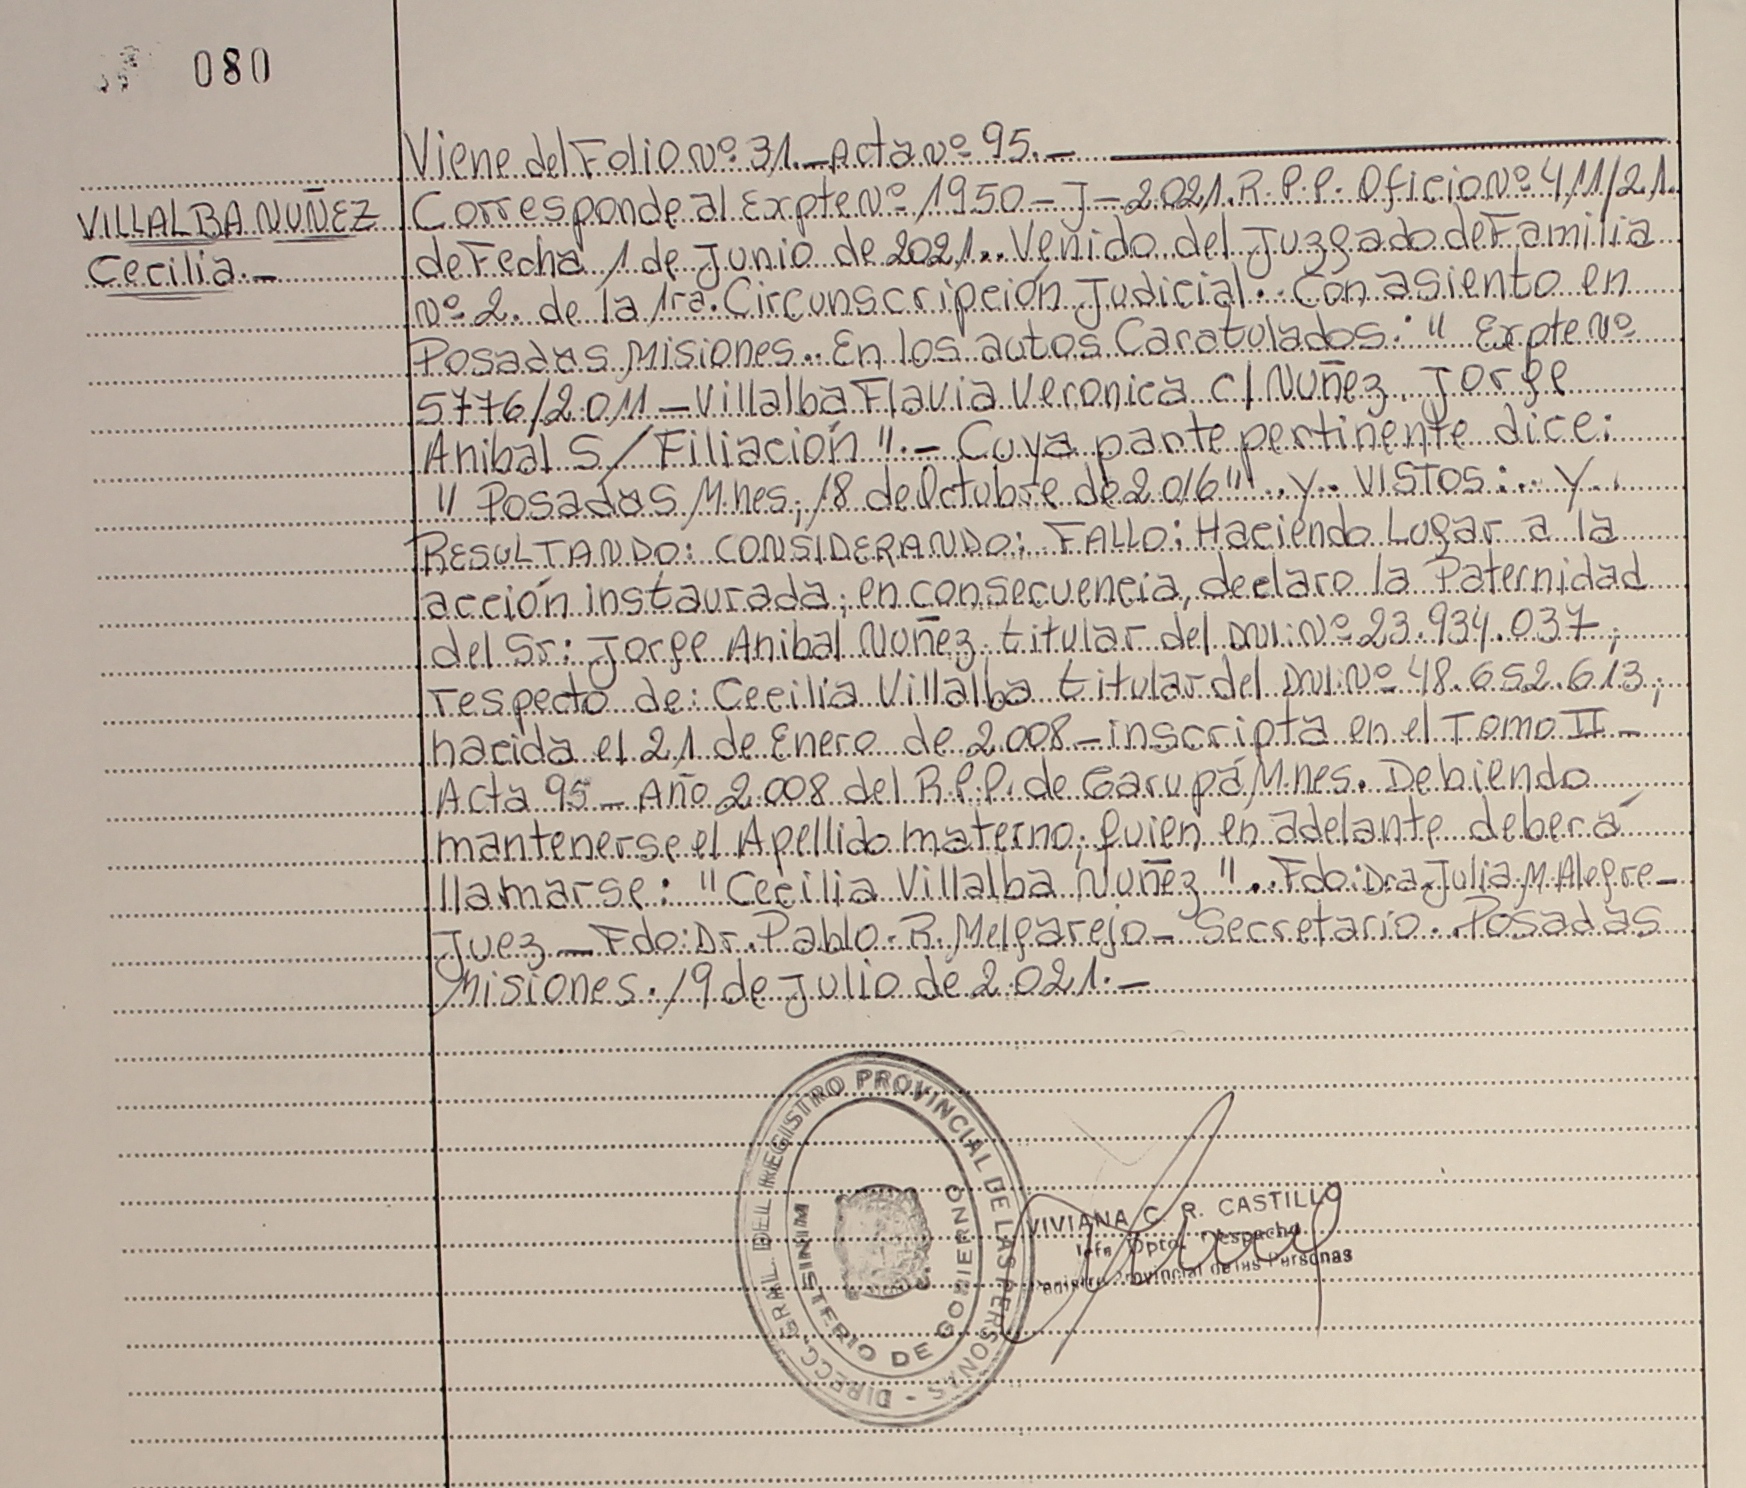 080
Viene del Folio Nº 31.- Acta Nº 95.-
VILLALBA NUÑEZ
Cecilia.-
Corresponde al Expte Nº 1950-J-2021. R.P.P. Oficio Nº 411/21.
de Fecha 1 de Junio de 2021.. Venido del Juzgado de Familia
Nº 2. de la 1ra. Circunscripción Judicial.. Con asiento en
Posadas Misiones.. En los autos Caratulados: " Expte Nº
5776/2.011-Villalba Flavia Veronica C/ Nuñez, Jorge
Anibal S/Filiación".- Cuya parte pertinente dice:
" Posadas Mnes; 18 de Octubre de 2.016"..Y.. VISTOS:.. Y..
RESULTANDO: CONSIDERANDO: FALLO: Haciendo Lugar a la
acción instaurada; en consecuencia, declaro la Paternidad
del Sr: Jorge Anibal Nuñez, titular del DNI:Nº 23.934.037;
respecto de: Cecilia Villalba titular del DNI:Nº 48.652.613;
nacida el 21 de Enero de 2.008-inscripta en el Tomo II-
Acta 95-Año 2.008 del R.P.P. de Garupá Mnes. Debiendo
mantenerse el Apellido materno; quien en adelante deberá
llamarse: "Cecilia Villalba Nuñez".. Fdo: Dra. Julia M. Alegre-
Juez-Fdo: Dr. Pablo. R. Melgarejo- Secretario.. Posadas
Misiones. 19 de Julio de 2.021.-
DIRECC. GRAL. DEL REGISTRO PROVINCIAL DE LAS PERSONAS -
MINISTERIO DE GOBIERNO
VIVIANA C. R. CASTILLO
Jefe Dpto. Despacho
Registro Provincial de las Personas